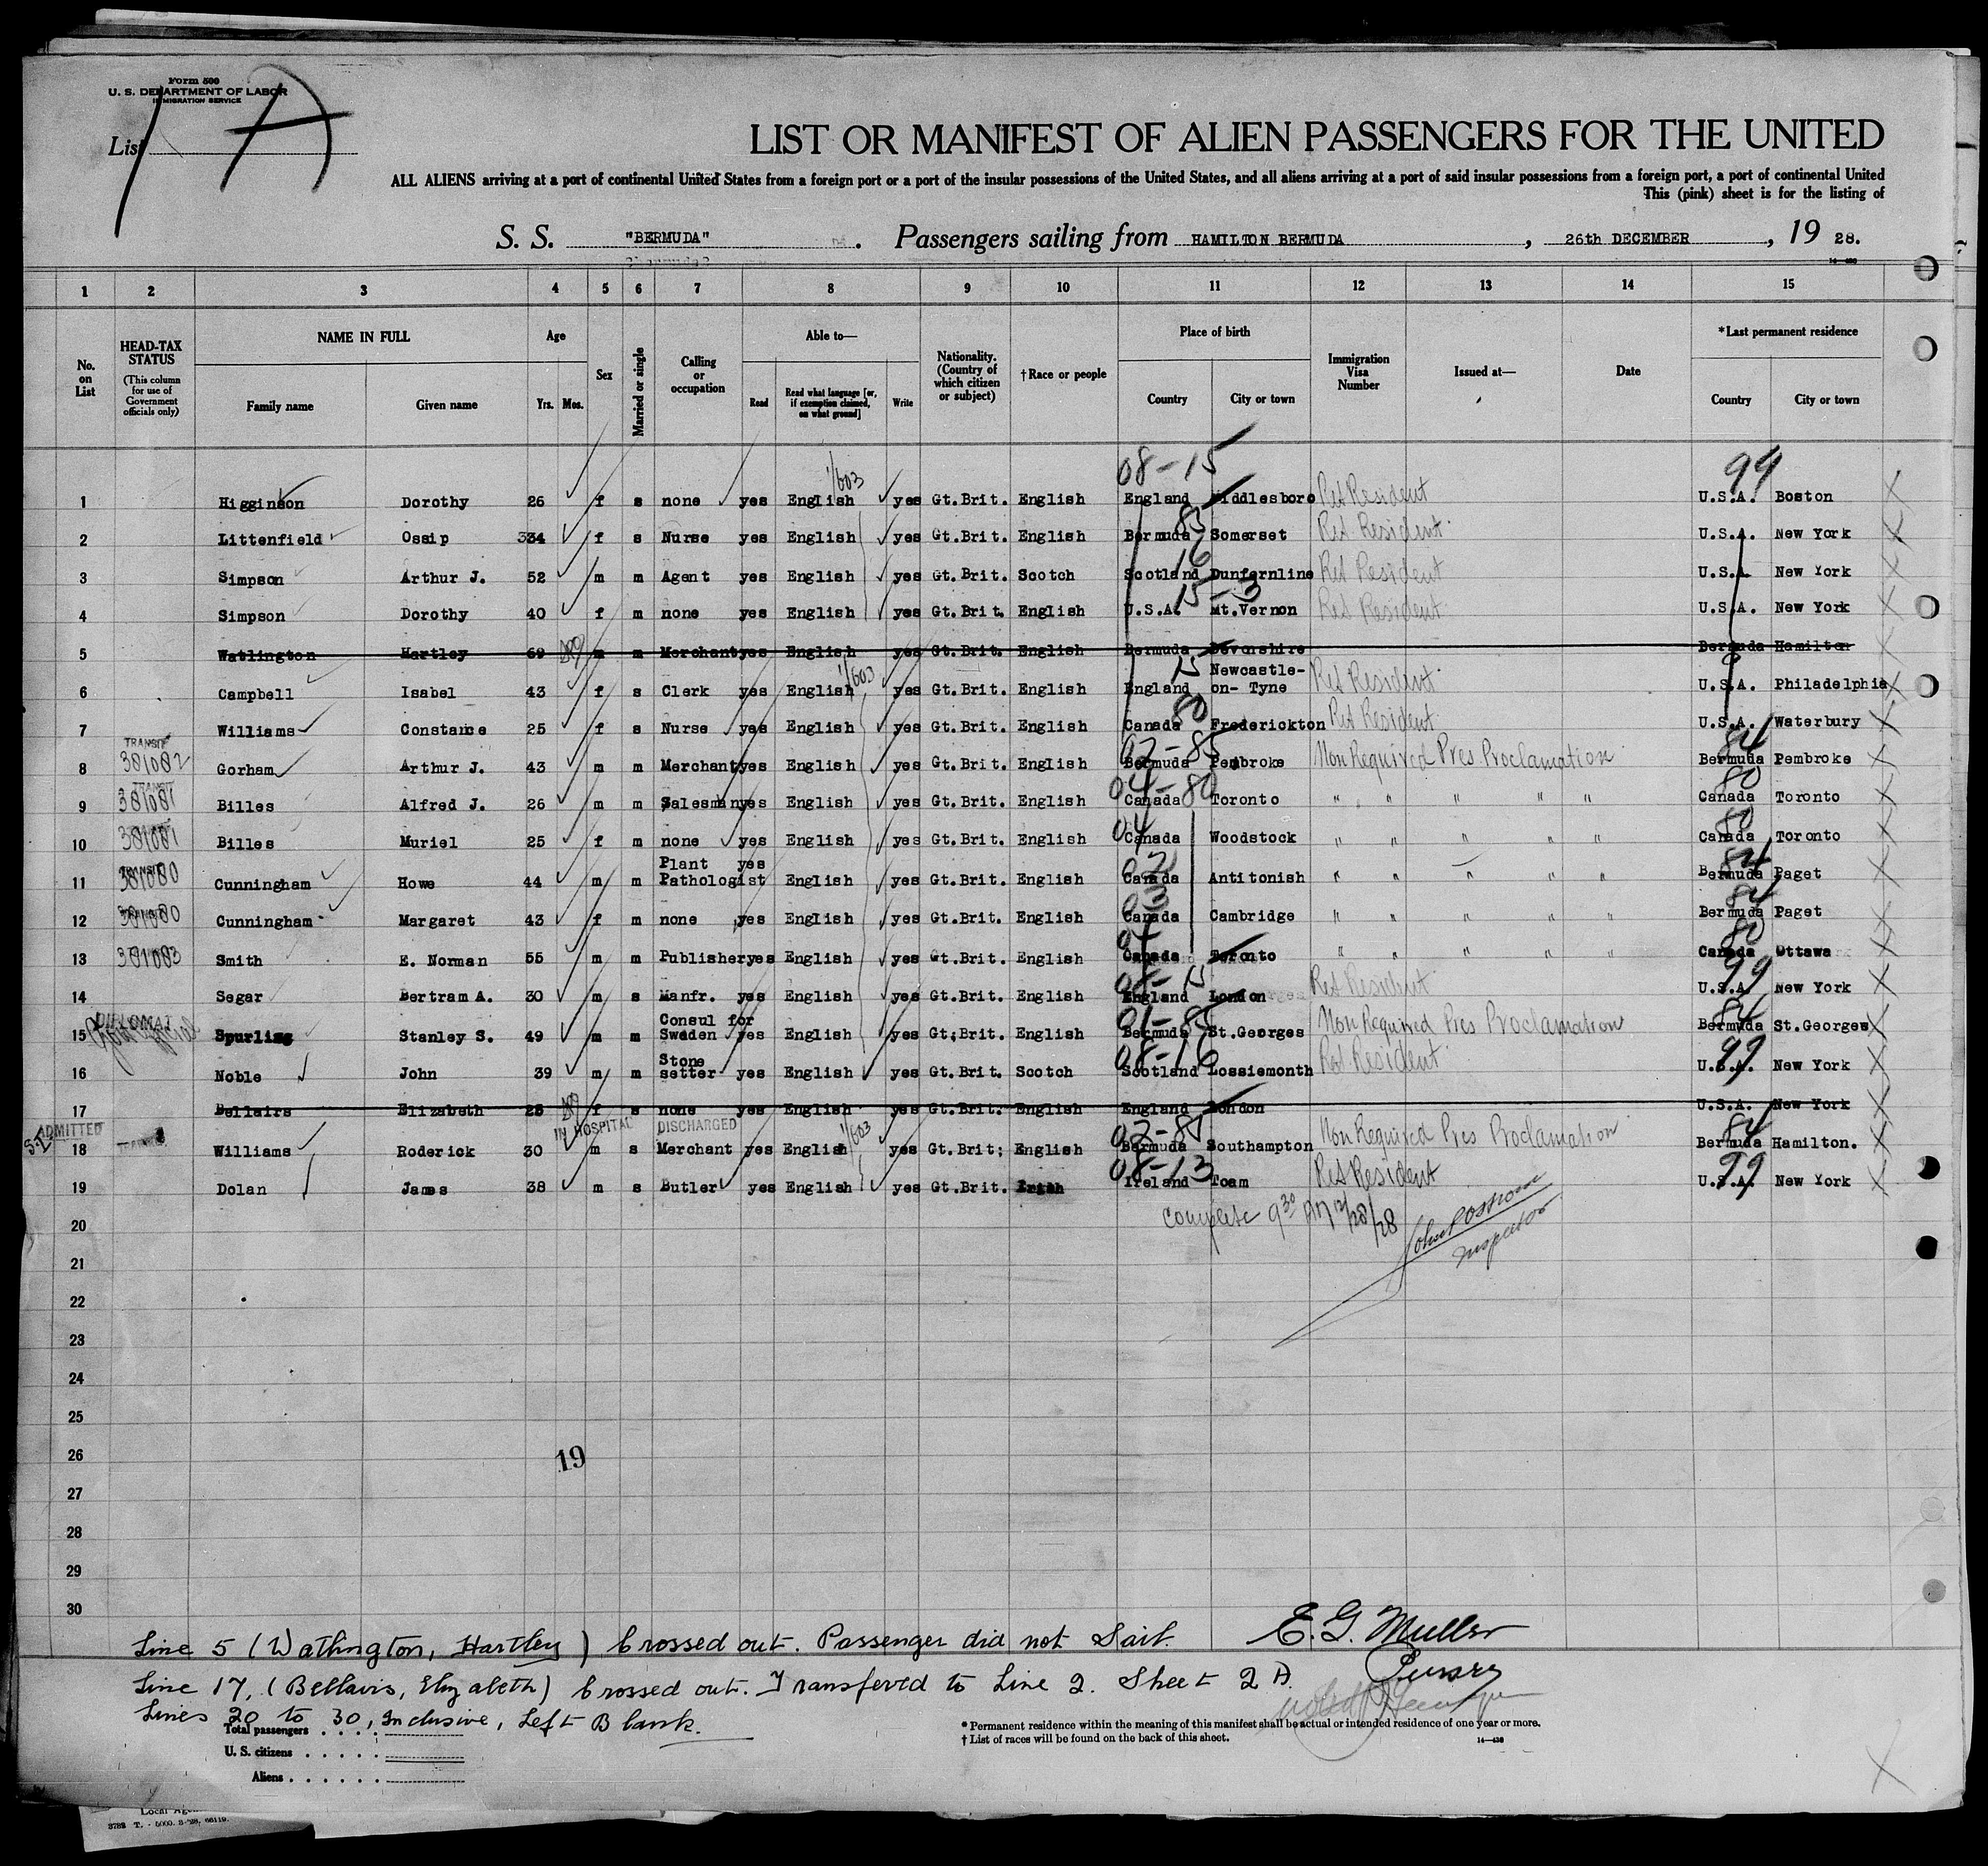 Form 500
U. S. DEPARTMENT OF LABOR
IMMIGRATION SERVICE
List 1 A
LIST OR MANIFEST OF ALIEN PASSENGERS FOR THE UNITED
ALL ALIENS arriving at a port of continental United States from a foreign port or a port of the insular possessions of the United States, and all aliens arriving at a port of said insular possessions from a foreign port, a port of continental United
This (pink) sheet is for the listing of
S. S. "BERMUDA". Passengers sailing from HAMILTON BERMUDA, 26th DECEMBER, 19 28.
1 2 3 4 5 6 7 8 9 10 11 12 13 14 15
No. on List
HEAD-TAX STATUS (This column for use of Government officials only)
NAME IN FULL Family name Given name
Age Yrs. Mos.
Sex
Married or single
Calling or occupation
Able to— Read Read what language [or, if exemption claimed, on what ground] Write
Nationality. (Country of which citizen or subject)
† Race or people
Place of birth Country City or town
Immigration Visa Number
Issued at—
Date
*Last permanent residence Country City or town
08-15 99
1 Higginson Dorothy 26 f s none yes English 1/603 yes Gt.Brit. English England Middlesboro Ret Resident U.S.A. Boston
2 Littenfield Ossip 334 f s Nurse yes English yes Gt.Brit. English Bermuda 85 Somerset Ret Resident U.S.A. New York
3 Simpson Arthur J. 52 m m Agent yes English yes Gt.Brit. Scotch Scotland 16 Dunfernline Ret Resident U.S.A. New York
4 Simpson Dorothy 40 f m none yes English yes Gt.Brit. English U.S.A. 15-3 Mt.Vernon Ret Resident U.S.A. New York
5 Watlington Hartley 69 m m Merchant yes English yes Gt.Brit. English Bermuda Devonshire Bermuda Hamilton
6 Campbell Isabel 43 f s Clerk yes English 1/603 yes Gt.Brit. English England 15 Newcastle-on- Tyne Ret Resident U.S.A. Philadelphia
7 Williams Constance 25 f s Nurse yes English yes Gt.Brit. English Canada 80 Frederickton Ret Resident U.S.A. Waterbury
8 TRANSIT 381082 Gorham Arthur J. 43 m m Merchant yes English yes Gt.Brit. English 02-85 Bermuda Pembroke Non Required Pres Proclamation 84 Bermuda Pembroke
9 381081 Billes Alfred J. 26 m m Salesman yes English yes Gt.Brit. English 04-80 Canada Toronto " " " " " 80 Canada Toronto
10 381081 Billes Muriel 25 f m none yes English yes Gt.Brit. English 04 Canada Woodstock " " " " " 80 Canada Toronto
11 TRANSIT 381080 Cunningham Howe 44 m m Plant Pathologist yes English yes Gt.Brit. English 02 Canada Antitonish " " " " " 84 Bermuda Paget
12 381080 Cunningham Margaret 43 f m none yes English yes Gt.Brit. English 03 Canada Cambridge " " " " " 84 Bermuda Paget
13 381083 Smith E. Norman 55 m m Publisher yes English yes Gt.Brit. English Canada Toronto " " " " " 80 Canada Ottawa
14 Segar Bertram A. 30 m s Manfr. yes English yes Gt.Brit. English 08-15 England London Ret Resident 99 U.S.A. New York
15 DIPLOMAT Spurling Stanley S. 49 m m Consul for Sweden yes English yes Gt;Brit. English 01-85 Bermuda St.Georges Non Required Pres Proclamation 84 Bermuda St.Georges
16 Noble John 39 m m Stone setter yes English yes Gt.Brit. Scotch 08-16 Scotland Lossiemonth Ret Resident 99 U.S.A. New York
17 Bellairs Elizabeth 28 f s none yes English yes Gt.Brit. English England London U.S.A. New York
ADMITTED IN HOSPITAL DISCHARGED
18 Williams Roderick 30 m s Merchant yes English 1/603 yes Gt.Brit; English Bermuda Southampton Non Required Pres Proclamation 84 Bermuda Hamilton.
19 Dolan James 38 m s Butler yes English yes Gt.Brit. Irish 08-13 Ireland Toam Ret Resident 99 U.S.A. New York
20 Complete 9 30 AM 12/28/28
21 Inspector
22
23
24
25
26 19
27
28
29
30
Line 5 (Watlington, Hartley) Crossed out. Passenger did not Sail. E. G. Muller
Line 17, (Bellairs, Elizabeth) Crossed out. Transferred to Line 2. Sheet 2 A. Purser
Lines 20 to 30, Inclusive, Left Blank.
Total passengers
U. S. citizens
Aliens
* Permanent residence within the meaning of this manifest shall be actual or intended residence of one year or more.
† List of races will be found on the back of this sheet. 14—430
3788 T. - 5000. 8-'28, 66119.